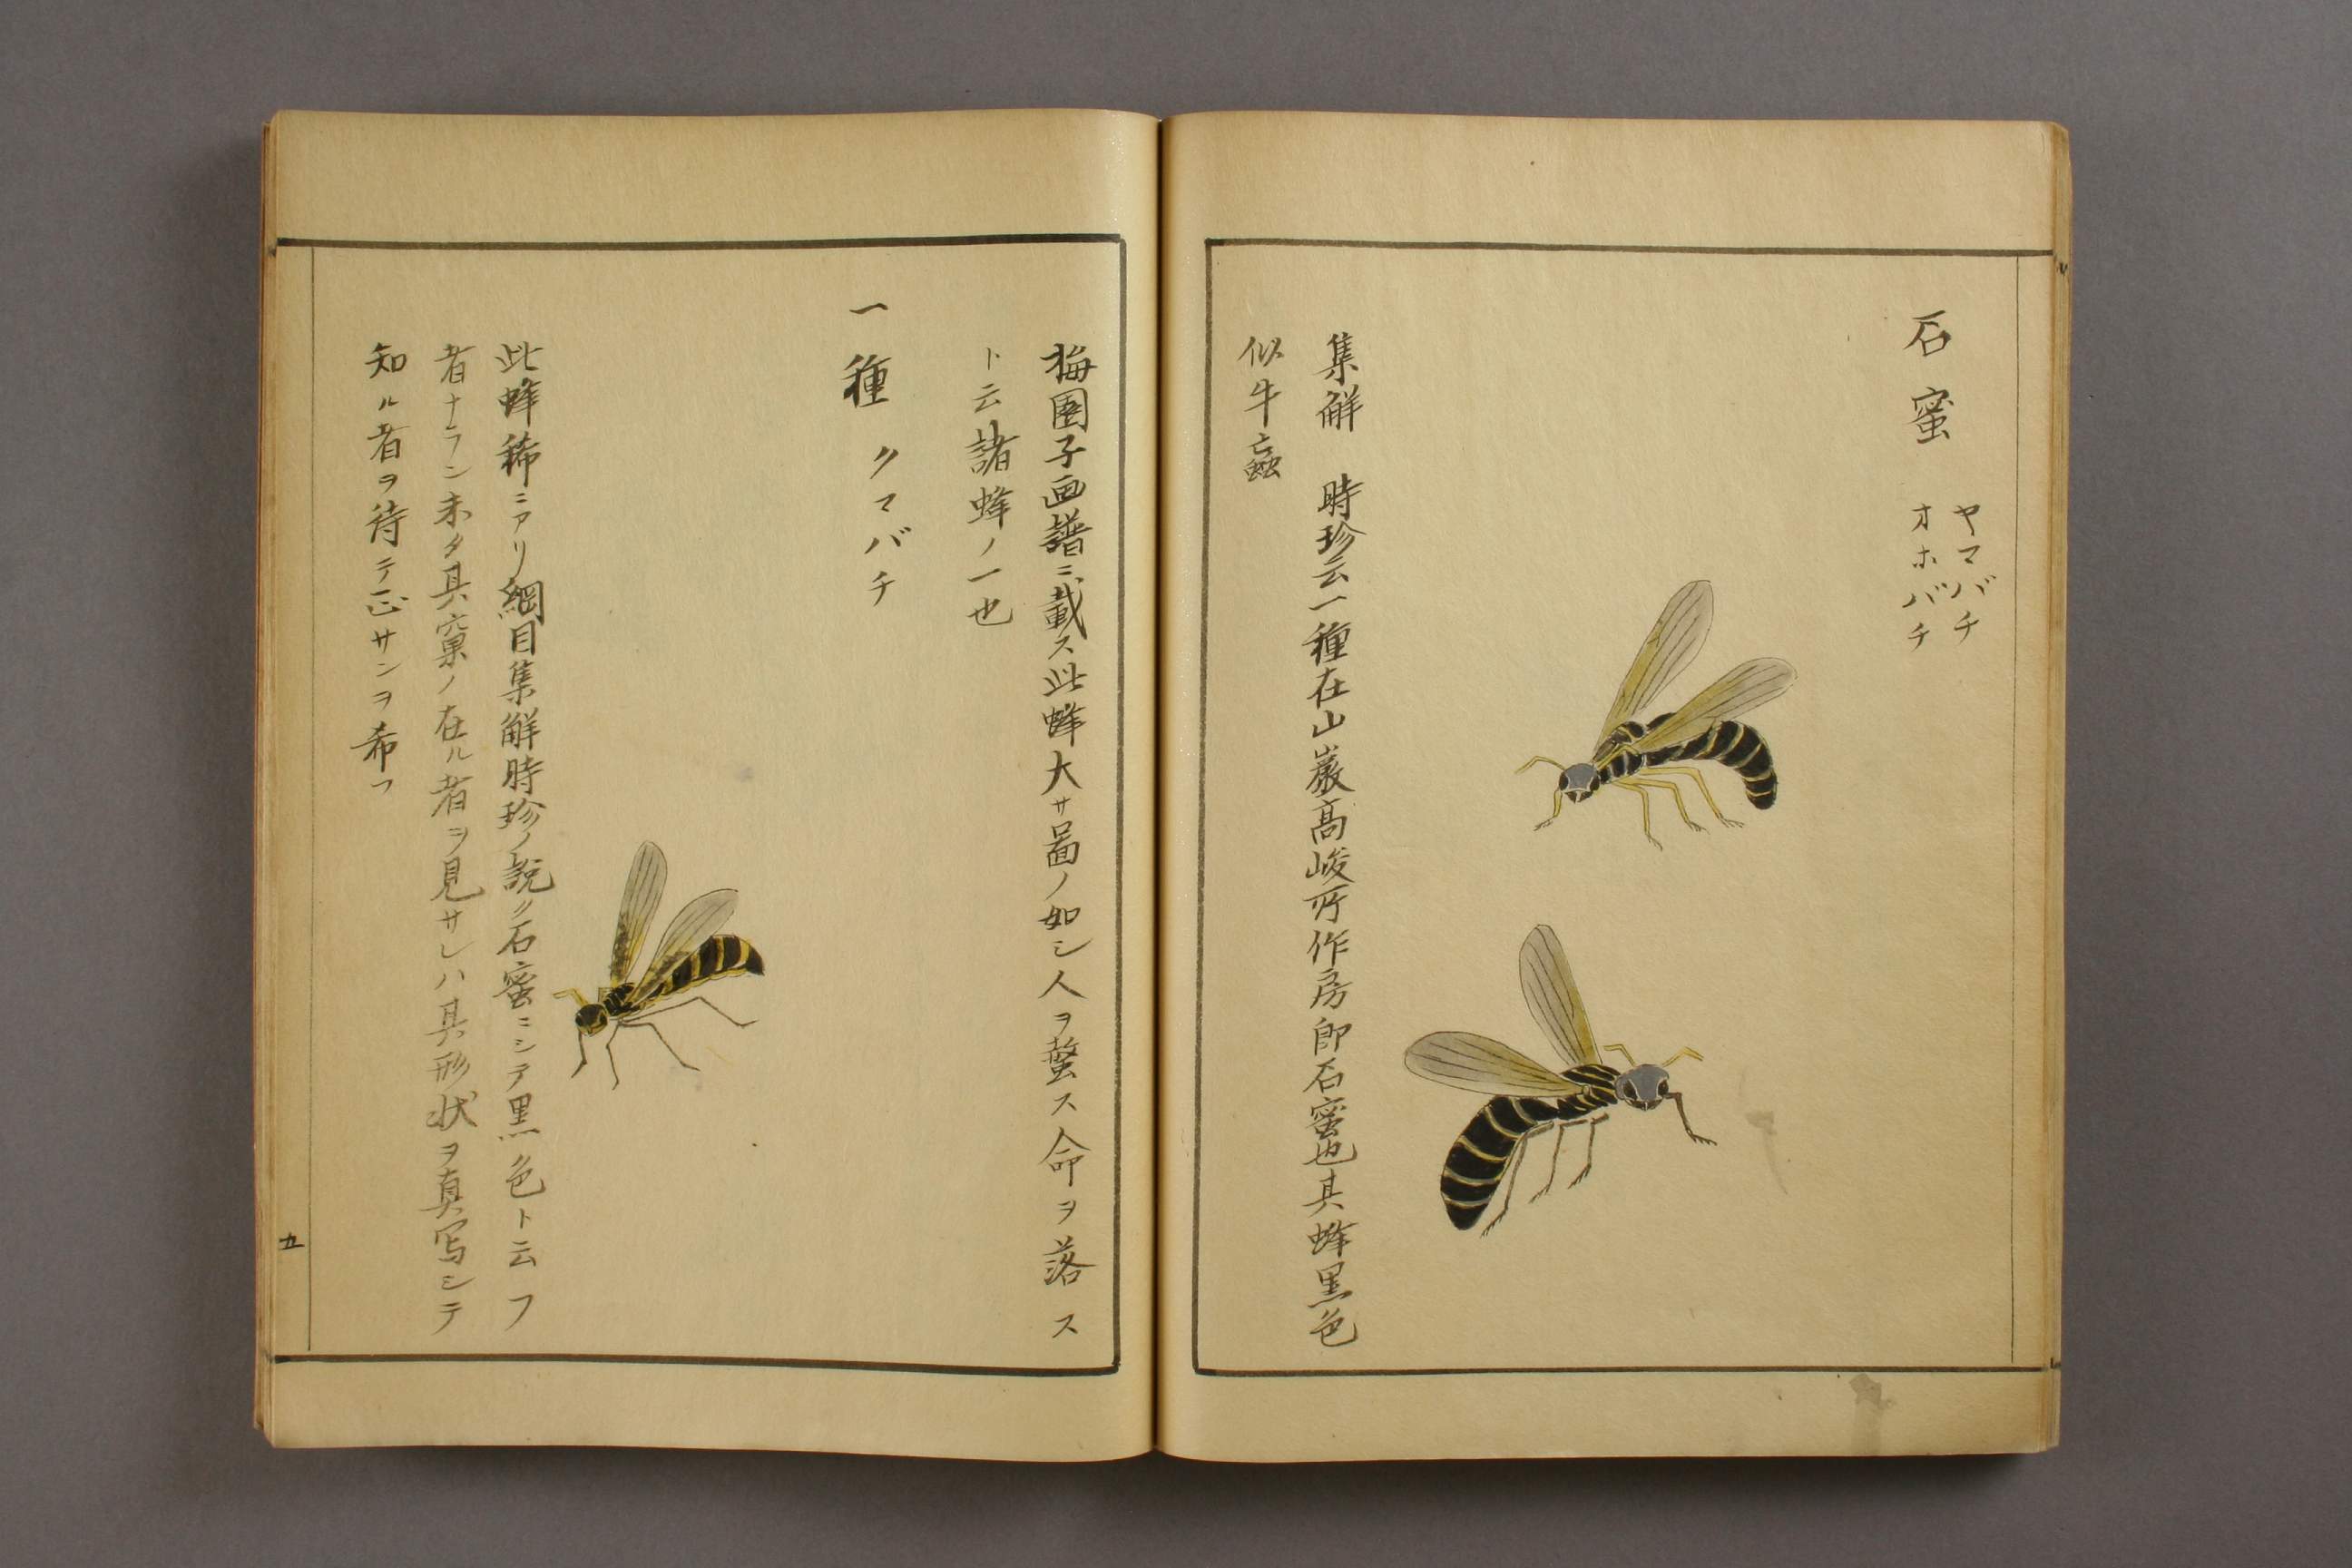 石蜜
ヤマバチ
オホバチ
集解 時珍云一種在山巌高峻所作房即石蜜也其蜂黒色
似牛蝱
梅園子画譜ニ載ス此蜂大サ啚ノ如シ人ヲ螫ス命ヲ落ス
ト云諸蜂ノ一也
一種 クマバチ
此蜂稀ニアリ綱目集解時珍ノ説ク石蜜ニシテ黒色ト云フ
者ナラン未タ其窠ノ在ル者ヲ見サレハ其形状ヲ真写シテ
知ル者ヲ待テ正サンヲ希フ
五